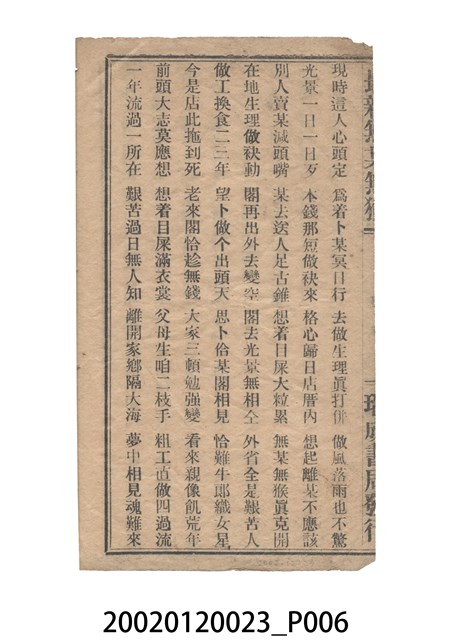 現時這人心頭定　為着卜某冥日行　去做生理眞打併　做風落雨也不驚
光景一日一日歹　本錢那短做袂來　格心歸日店厝內　想起離某不應該
別人賣某減頭嘴　某去送人足古錐　想着目屎大粒累　無某無猴眞克開
在地生理做袂動　閣再出外去變空　閣去光景無相仝　外省全是艱苦人
做工換食二三年　望卜做个出頭天　思卜佮某閣相見　恰難牛郎織女星
今是店此拖到死　老來閣恰趁無錢　大家三頓勉強變　看來親像飢荒年
前頭大志莫應想　想着目屎滿衣裳　父母生咱二枝手　粗工直做四過流
一年流過一所在　艱苦過日無人知　離開家鄉隔大海　夢中相見魂難來
20020120023_P006